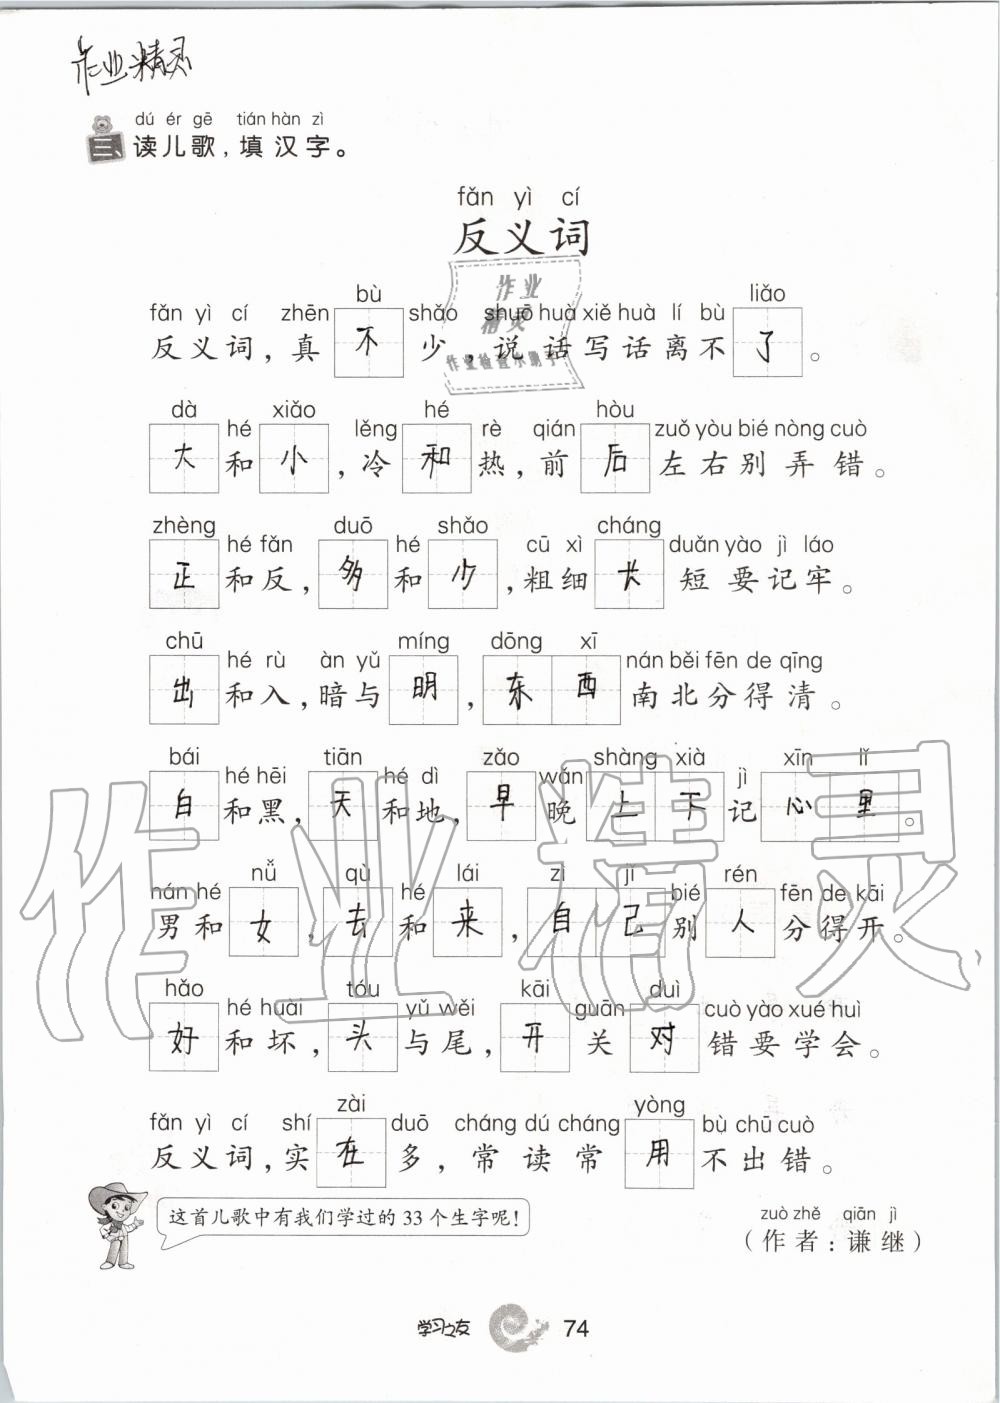 作业精灵
dú ér gē tián hàn zì
三、读儿歌，填汉字。
fǎn yì cí
反义词
作业
精灵
作业检查小助手
fǎn yì cí zhēn bù shǎo shuō huà xiě huà lí bù liǎo
反义词，真不少，说话写话离不了。
dà hé xiǎo lěng hé rè qián hòu zuǒ yòu bié nòng cuò
大和小，冷和热，前后左右别弄错。
zhèng hé fǎn duō hé shǎo cū xì cháng duǎn yào jì láo
正和反，多和少，粗细长短要记牢。
chū hé rù àn yǔ míng dōng xī nán běi fēn de qīng
出和入，暗与明，东西南北分得清。
bái hé hēi tiān hé dì zǎo wǎn shàng xià jì xīn lǐ
白和黑，天和地，早晚上下记心里。
nán hé nǚ qù hé lái zì jǐ bié rén fēn de kāi
男和女，去和来，自己别人分得开。
hǎo hé huài tóu yǔ wěi kāi guān duì cuò yào xué huì
好和坏，头与尾，开关对错要学会。
fǎn yì cí shí zài duō cháng dú cháng yòng bù chū cuò
反义词，实在多，常读常用不出错。
这首儿歌中有我们学过的33个生字呢！
zuò zhě qiān jì
（作者：谦继）
学习之友 74
作业精灵